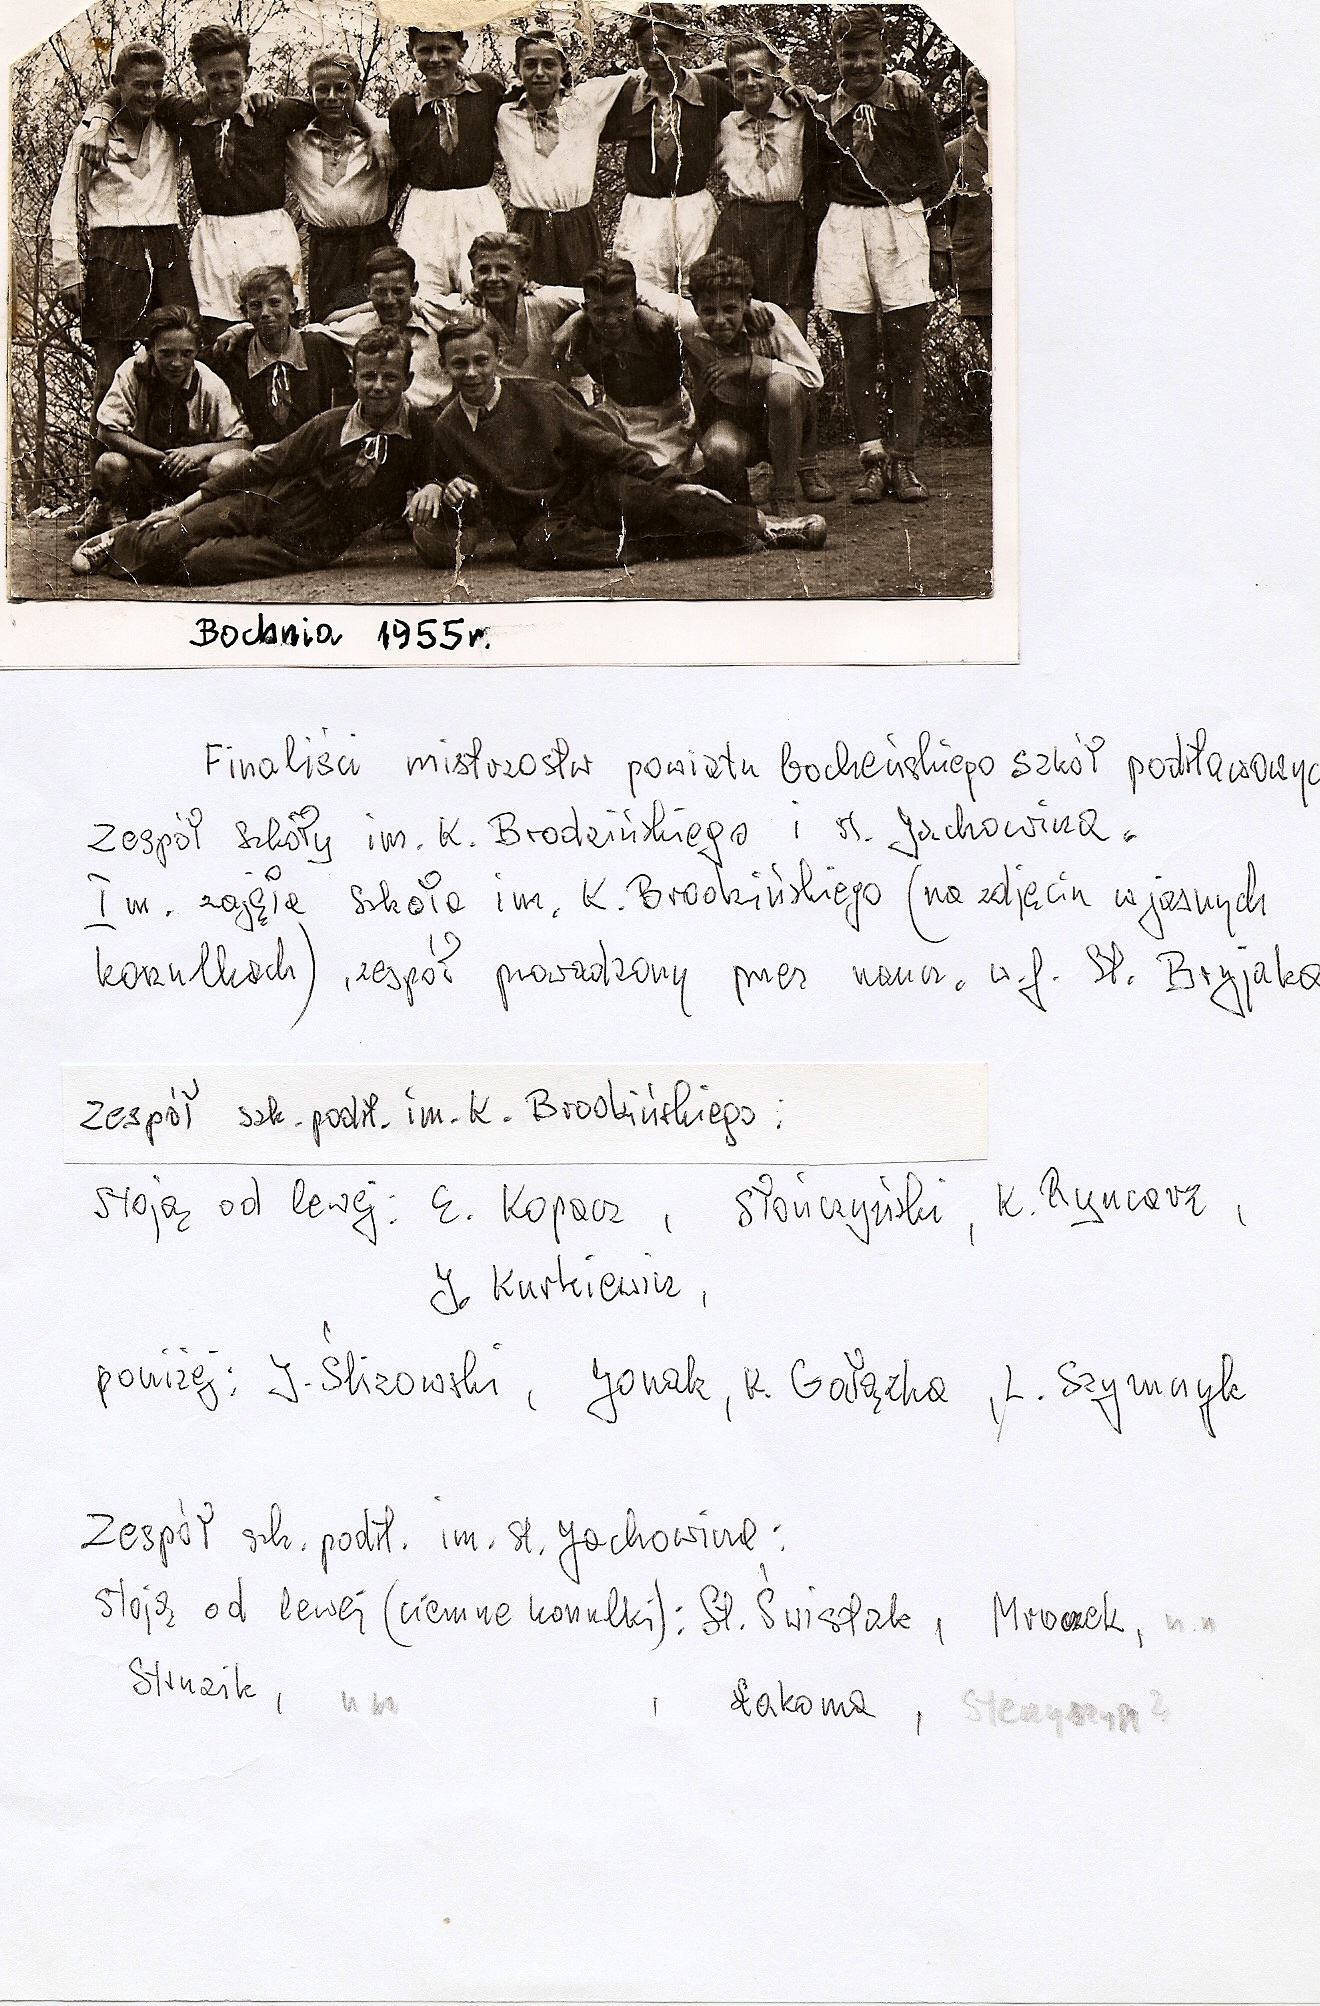 Bochnia 1955r.
Finaliści mistrzostw powiatu bocheńskiego szkół podstawowyc
Zespół Szkoły im. K. Brodzińskiego i st. Jachowicza.
I m. zajęła szkoła im. K. Brodzińskiego (na zdjęciu w jasnych
koszulkach), zespół prowadzony przez naucz. w.f. St. Bryjaka
Zespół szk. podst. im. K. Brodzińskiego:
stoją od lewej: E. Kopacz, Słończyński, K. Ryncarz,
J. Kurkiewicz,
poniżej: J. Ślizowski, Jonak, K. Gałązka, L. Szymczyk
Zespół szk. podst. im. st. Jachowicza:
stoją od lewej (ciemne koszulki): St. Świstak, Mroczek, n.n
Struzik, nn, Łakoma,